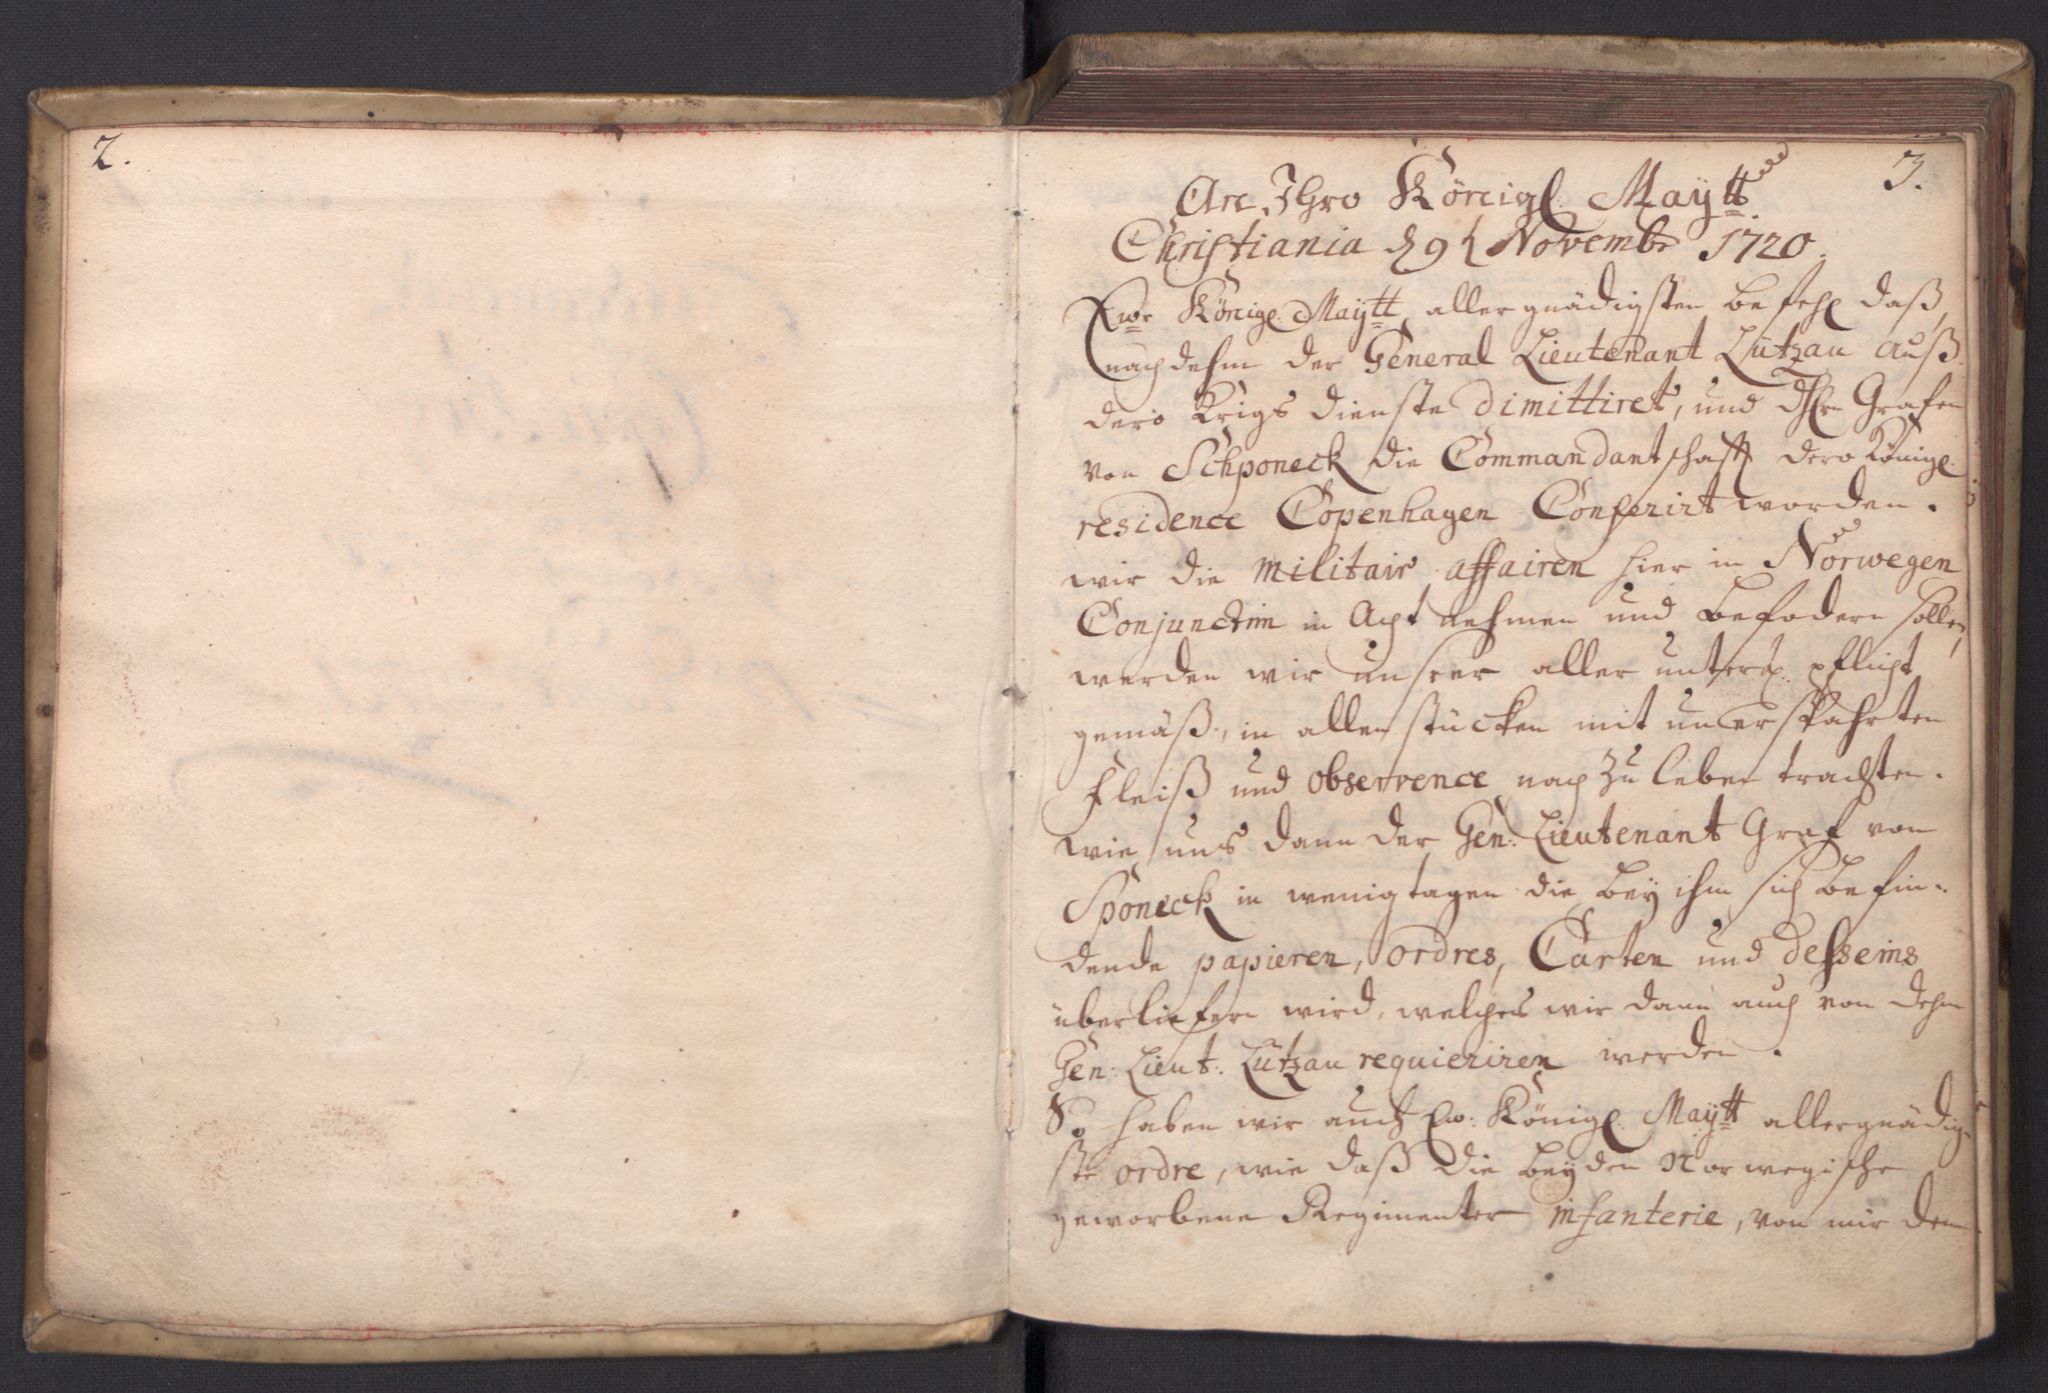 2.
3.
An Ihro Königl. Maytt
Christiania d 9t Novembr 1720.
Ewr Königl. Maytt allergnädigsten befehl daß,
nachdehm der General Lieutenant Lützau auß
dero Krigs dienste dimittiret, und Grafen
von Schponeck die Commandantschafft dero Königl.
residence Copenhagen Conferirt worden.
wir die militair affairen hier in Norwegen
Conjunctim in Acht nehmen und befodern sollen,
werden wir unserer aller unterth. pflicht
gemäß, in allen stücken mit unerspahrten
Fleiß und observence nach zu leben trachten.
wie uns dann der Gen: Lieutenant Graf von
Sponeck in wenig tagen die bey ihm sich befin-
dende papieren, ordres, Carten und desseins
überliefern wird, welches wir dann auch von dehm
Gen: Lieut: Lützau requieriren werden.
So haben wir auch Ew: Königl. Maytt allergnädig-
ste ordre, wie daß die beyden Norwegische
geworbene Regimenter infanterie, von mir dem